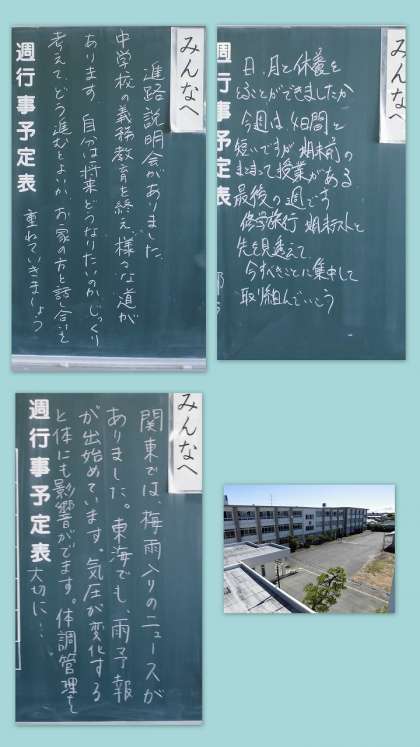 みんなへ
進路説明会がありました。
中学校の義務教育を終え、様々な道が
あります。自分は将来どうなりたいのか、じっくり
考えて、どう進むとよいか、お家の方と話し合いを
重ねていきましょう
週行事予定表
みんなへ
日、月と休養を
とることができましたか
今週は4日間と
短いですが期末前の
まとまって授業がある
最後の週です
修学旅行、期末テストと
先を見通えて
今すべきことに集中して
取り組んでいこう
週行事予定表
みんなへ
関東では、梅雨入りのニュースが
ありました。東海でも、雨予報
が出始めています。気圧が変化する
と体にも影響がでます。体調管理を
大切に…
週行事予定表